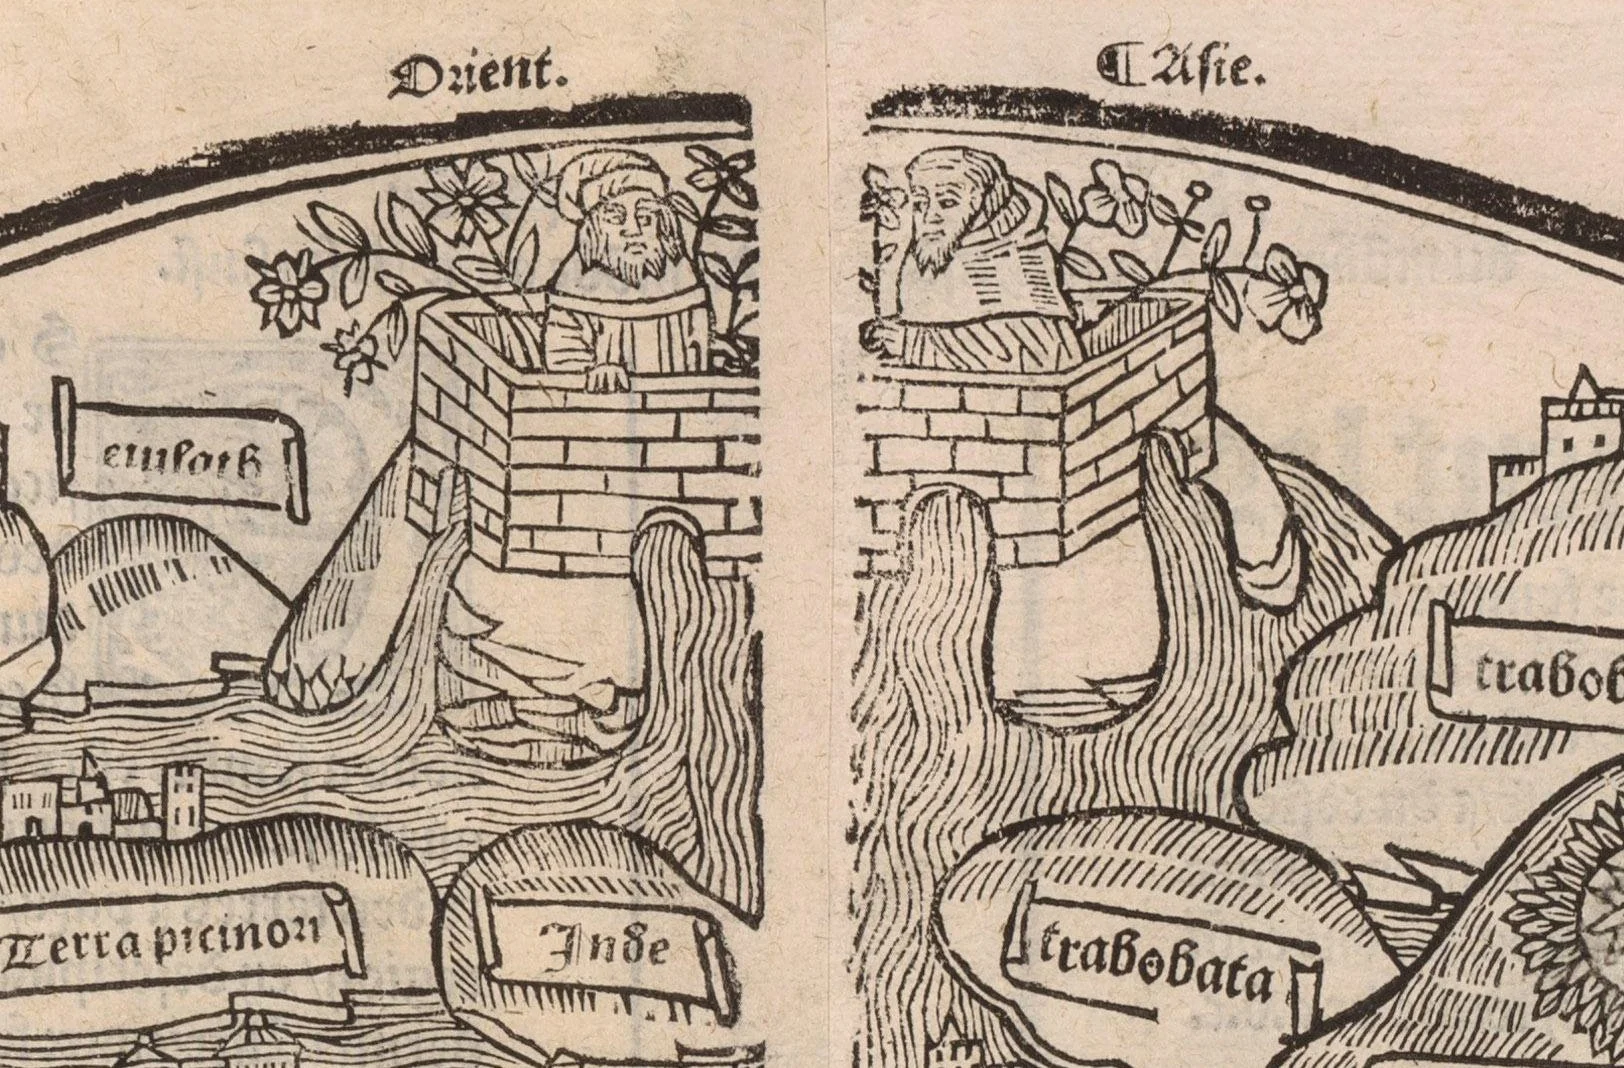 Orient.
¶ Asie.
euilath
trabob
Terra picinori
Inde
trabobata